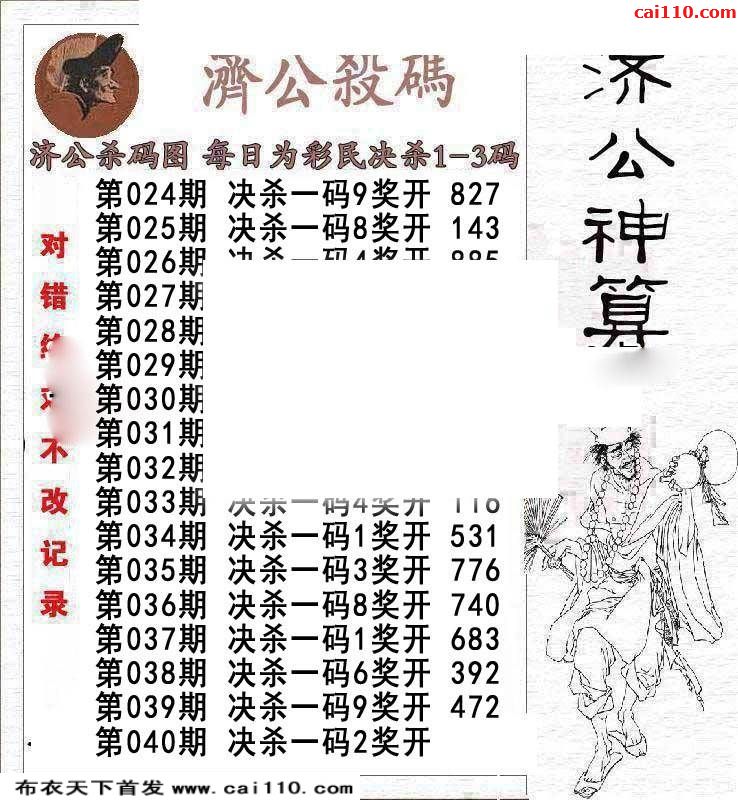 cai110.com
濟公殺碼
济公杀码图 每日为彩民决杀1-3码
第024期 决杀一码9奖开 827
第025期 决杀一码8奖开 143
第026期 决杀一码4奖开 885
第027期
第028期
第029期
第030期
第031期
第032期
第033期 决杀一码4奖开 116
第034期 决杀一码1奖开 531
第035期 决杀一码3奖开 776
第036期 决杀一码8奖开 740
第037期 决杀一码1奖开 683
第038期 决杀一码6奖开 392
第039期 决杀一码9奖开 472
第040期 决杀一码2奖开
对错
不改记录
济公神算
布衣天下首发 www.cai110.com